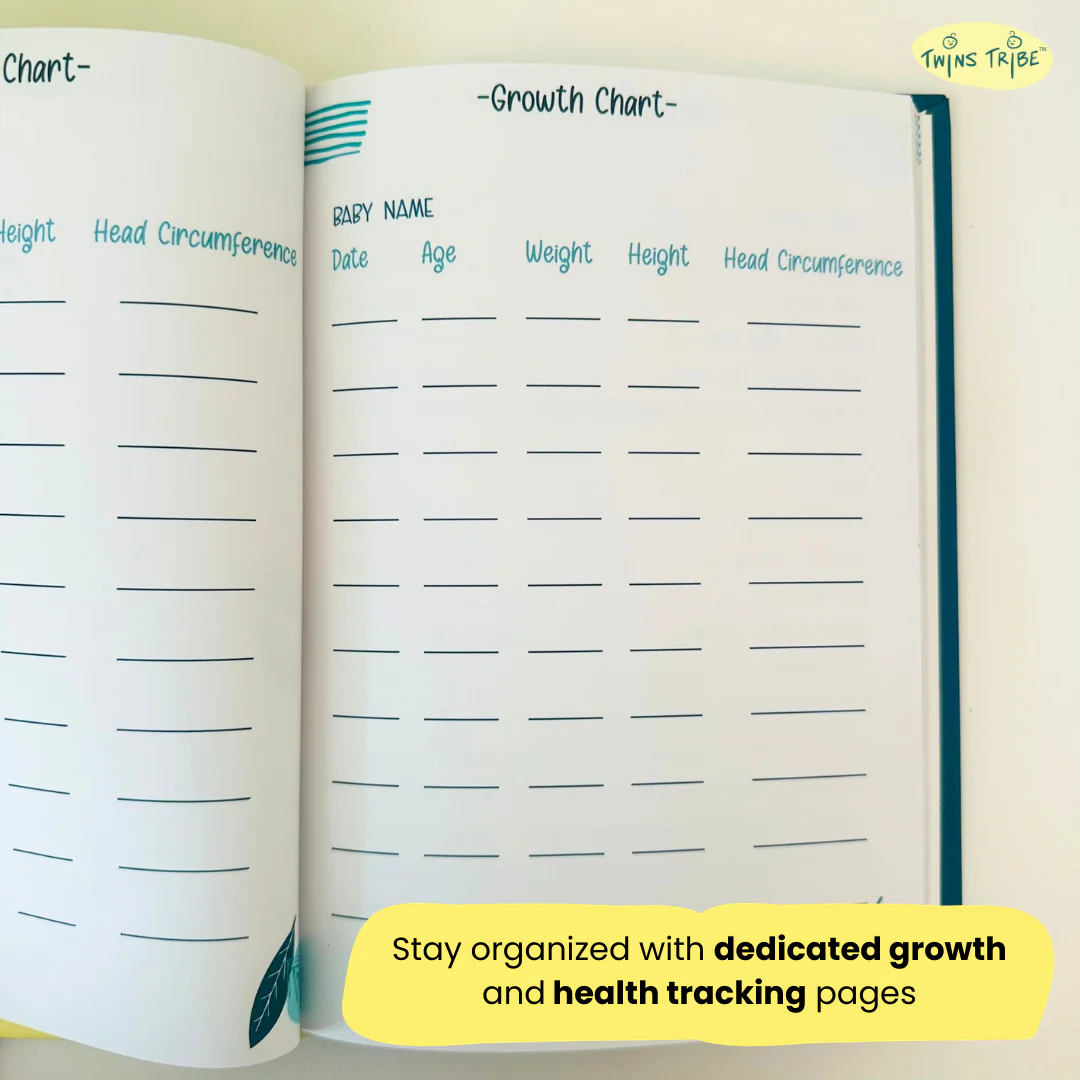 TWINS TRIBE™
Chart-
Height
Head Circumference
-Growth Chart-
BABY NAME
Date Age Weight Height Head Circumference
Stay organized with dedicated growth
and health tracking pages